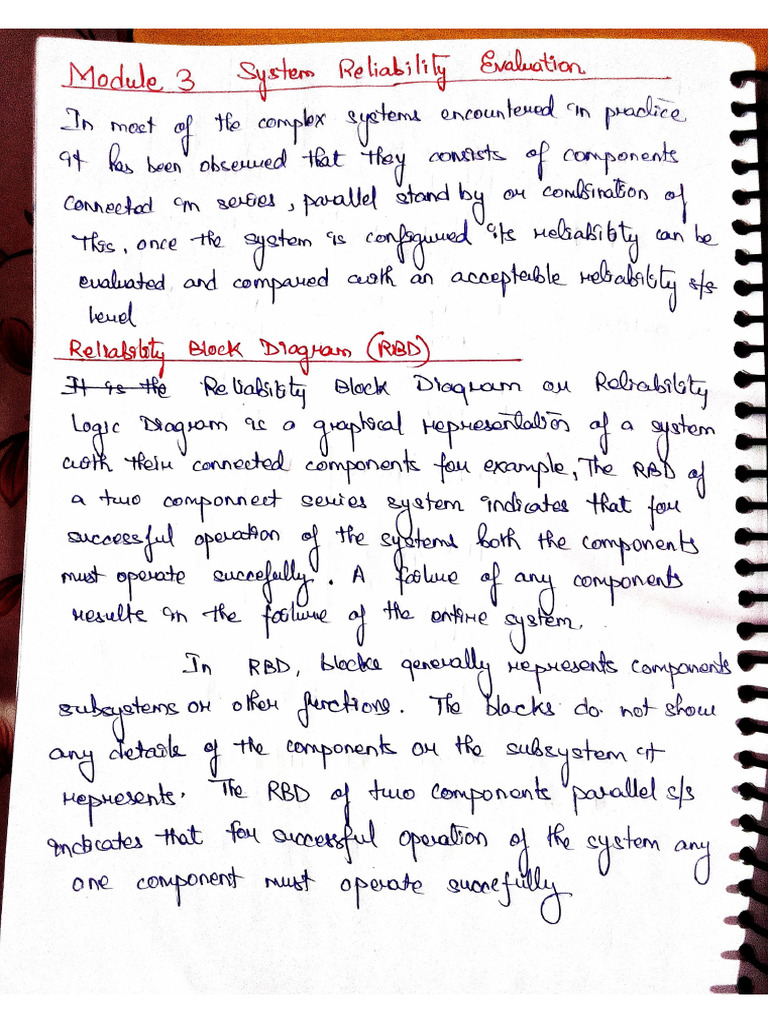 Module 3 System Reliability Evaluation
In most of the complex systems encountered in practice
it has been observed that they consists of components
connected in series, parallel stand by or combination of
this, once the system is configured its reliability can be
evaluated and compared with an acceptable reliability s/s
level
Reliability Block Diagram (RBD)
It is the Reliability Block Diagram or Reliability
Logic Diagram is a graphical representation of a system
with their connected components for example, The RBD of
a two componnect series system indicates that for
successful operation of the systems both the components
must operate succefully. A failure of any components
results in the failure of the entire system.
In RBD, blocks generally represents components
subsystems or other functions. The blocks do not show
any details of the components or the subsystem it
represents. The RBD of two components parallel s/s
indicates that for successful operation of the system any
one component must operate succefully